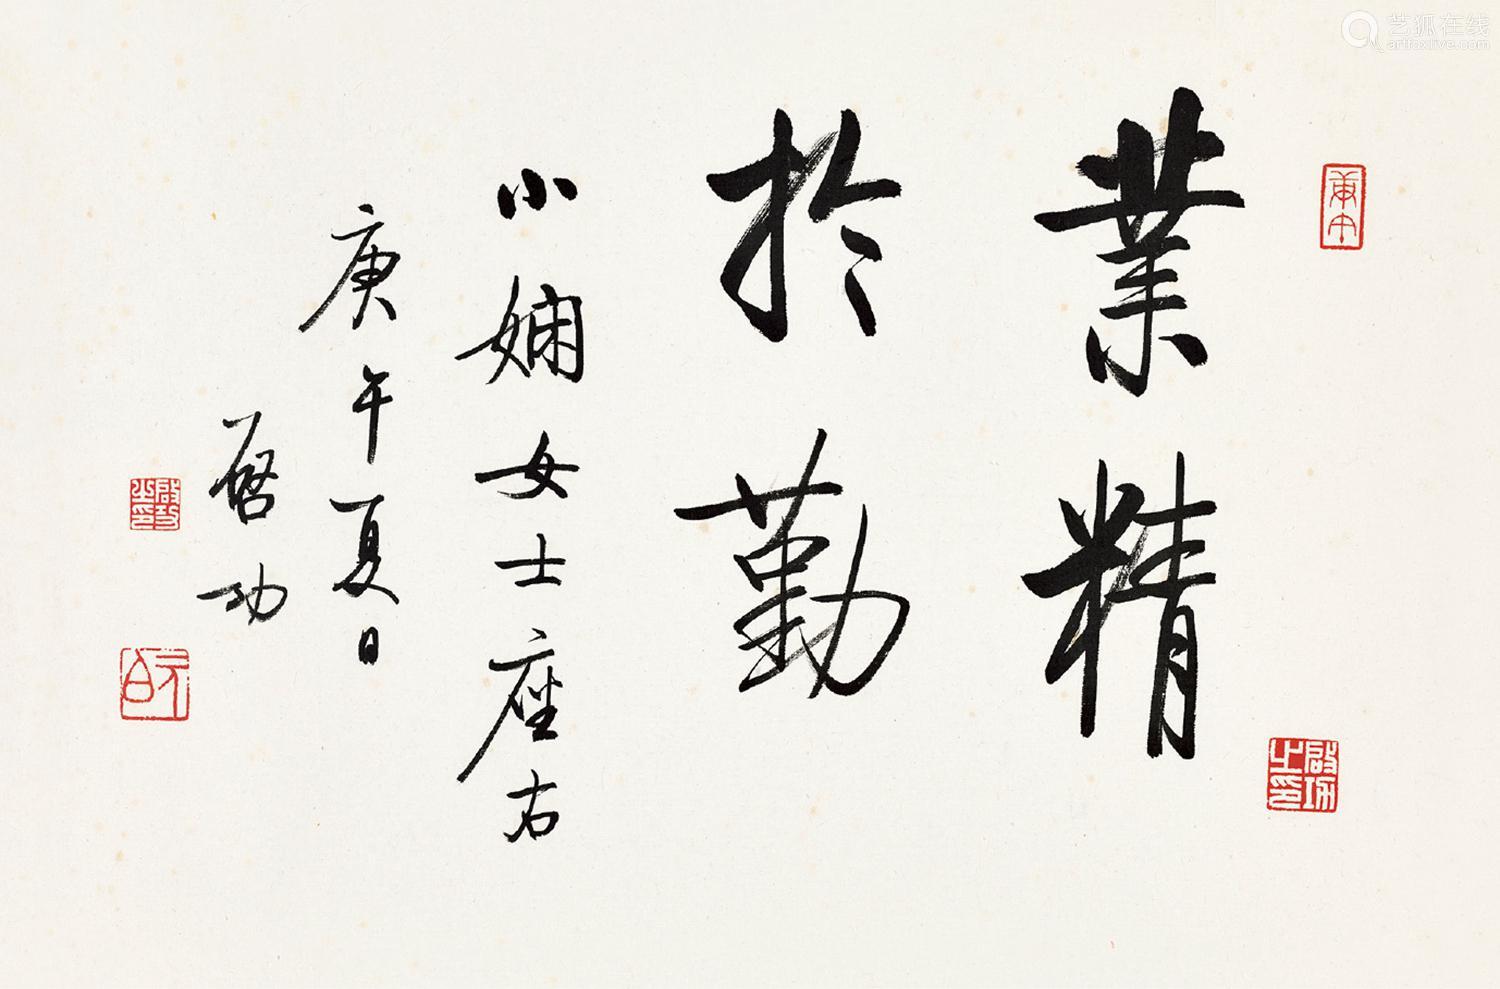 業精
於勤
小嫻女士座右
庚午夏日
啓功
啟功之印
元白
艺狐在线
artfoxlive.com